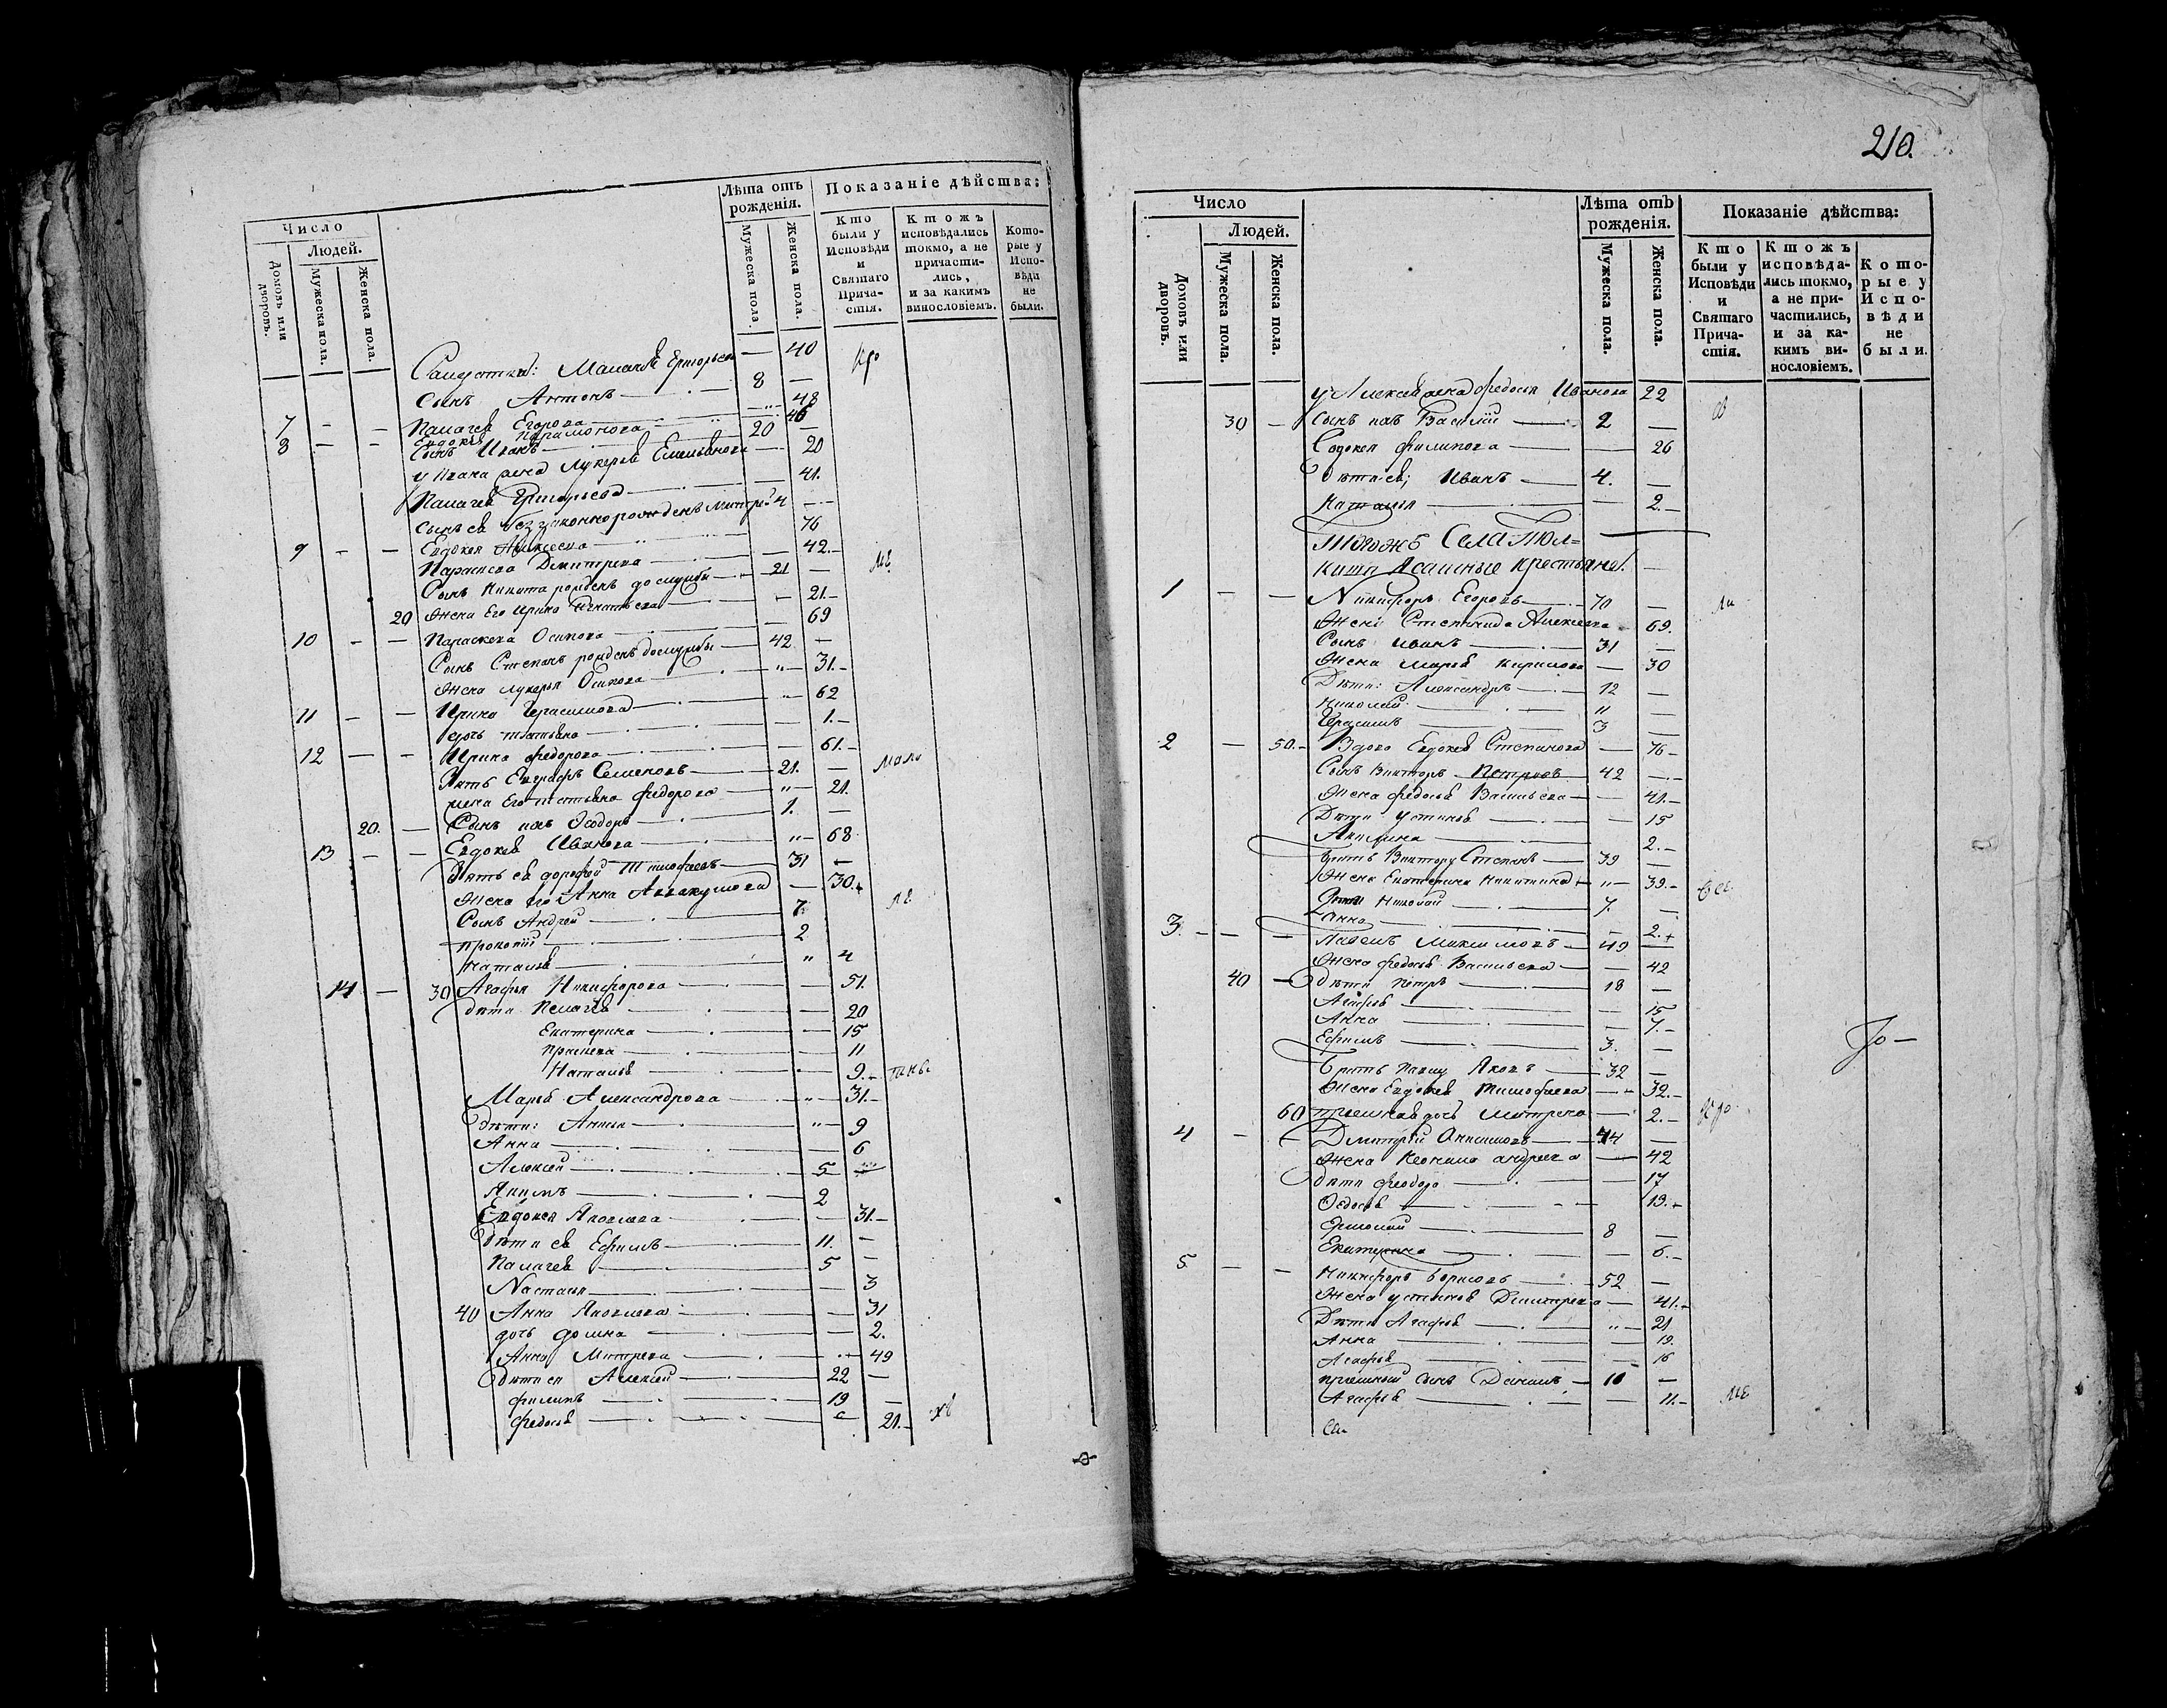 Число
Людей.
Домовъ или дворовъ.
Мужеска пола.
Женска пола.
Лѣта отъ рожденія.
Мужеска пола.
Женска пола.
Показаніе дѣйства:
Кто были у Исповѣди и Святаго Прича-стія.
Ктожъ исповѣдались токмо, а не причасти-лись, и за какимъ винословіемъ.
Кото-рые у Испо-вѣди не были.
40
Сынъ Антонъ 8 —
7 — — Егорова 48
8 — — Евдокія Парамонова 46
Сынъ Иванъ 20 —
у Ивана жена Лукерья Емельянова — 20
Григорьева — 41.
Сынъ ея беззаконнорожденъ 4 —
9 — — Евдокея Алексеева 76
Параскева Дмитрева — 42.—
Сынъ Никита рожденъ до службы 21 —
20 Жена Его Ирина Игнатьева — 21.—
10 — — Параскева Осипова — 69
Сынъ Степанъ рожденъ до службы 42 —
Жена Лукерья Осипова 31.—
11 — — Ирина Герасимова — 62
дочь Татьяна — 1.—
12 — — Ирина Федорова — 61.—
Зять Евграфъ Семеновъ 21. —
жена Его Татьяна Федорова 21.
20. — Сынъ ихъ Ѳеодоръ 1. —
13 — — Евдокея Иванова 68
Зять ея Дорофей Тимофеевъ 31 —
Жена его Анна Аввакумова — 30.
Сынъ Андрей 7.
Прокопій 2
Наталья 4
14 — 30 Агафья Никифорова — 51.
дѣти Пелагея — 20
Екатерина — 15
Праскева — 11
Наталья 9.—
Марья Александрова 31.—
дѣти: Анисья 9
Анна — 6
Алексей 5
Акимъ 2
Евдокея Яковлева — 31.—
дѣти ея Ефимъ 11. —
5 —
Настасья — 3
40 Анна Яковлева — 31
дочь Домна — 2.
Анна Митрева 49
дѣти ея Алексей 22 —
Филипъ 19 —
Федосья 21.—
210.
Число
Людей.
Домовъ или дворовъ.
Мужеска пола.
Женска пола.
Лѣта отъ рожденія.
Мужеска пола.
Женска пола.
Показаніе дѣйства:
Кто были у Исповѣди и Святаго Прича-стія.
Ктожъ исповѣда-лись токмо, а не при-частились, и за ка-кимъ ви-нословіемъ.
Кото-рые у Испо-вѣди не были.
у Алексея жена Федосья Иванова 22
30 — Сынъ ихъ Василій 2 —
Филипова — 26
дѣти ея; Иванъ 4. —
Наталья 2.—
Тогожъ Села
Ясашные крестьяне.
1 — — Никифоръ Егоровъ 70 —
Жена Степанида Алексеева 69.
Сынъ Иванъ 31 —
Жена Марья Кирилова — 30
Дѣти: Александръ 12 —
Николай 11 —
Герасимъ 3 —
2 — 50.— Вдова Евдокея Степанова — 76—
Сынъ Викторъ Петровъ 42 —
Жена Федосья Васильева — 41.—
Дѣти Устинья — 15
Акилина 2.—
Зять Виктору Степанъ 39 —
Жена Екатерина Никитина 39.—
Николай 7. —
Анна — 2.
3. — — Павелъ Максимовъ 49 —
Жена Федосья Васильева — 42
40 — дѣти Петръ 18 —
Агафья — 15
Анна — 7.—
Ефимъ 3. —
братъ Павлу Яковъ 32 —
Жена Евдокея Тимофеева 32.—
60 дочь Митрева 2.—
4 — — Дмитрей Анисимовъ 44 —
Жена Андреева — 42
дѣти — 17
Федосья 13.
Ермолай 8 —
Екатерина — 6.—
5 — — Никифоръ Борисовъ 52 —
Жена Устинья Дмитрева — 41.
Дѣти Агафья 21
Анна 19.
Агафья 16
приемной сынъ Данилъ 10 —
Агафья — 11.—